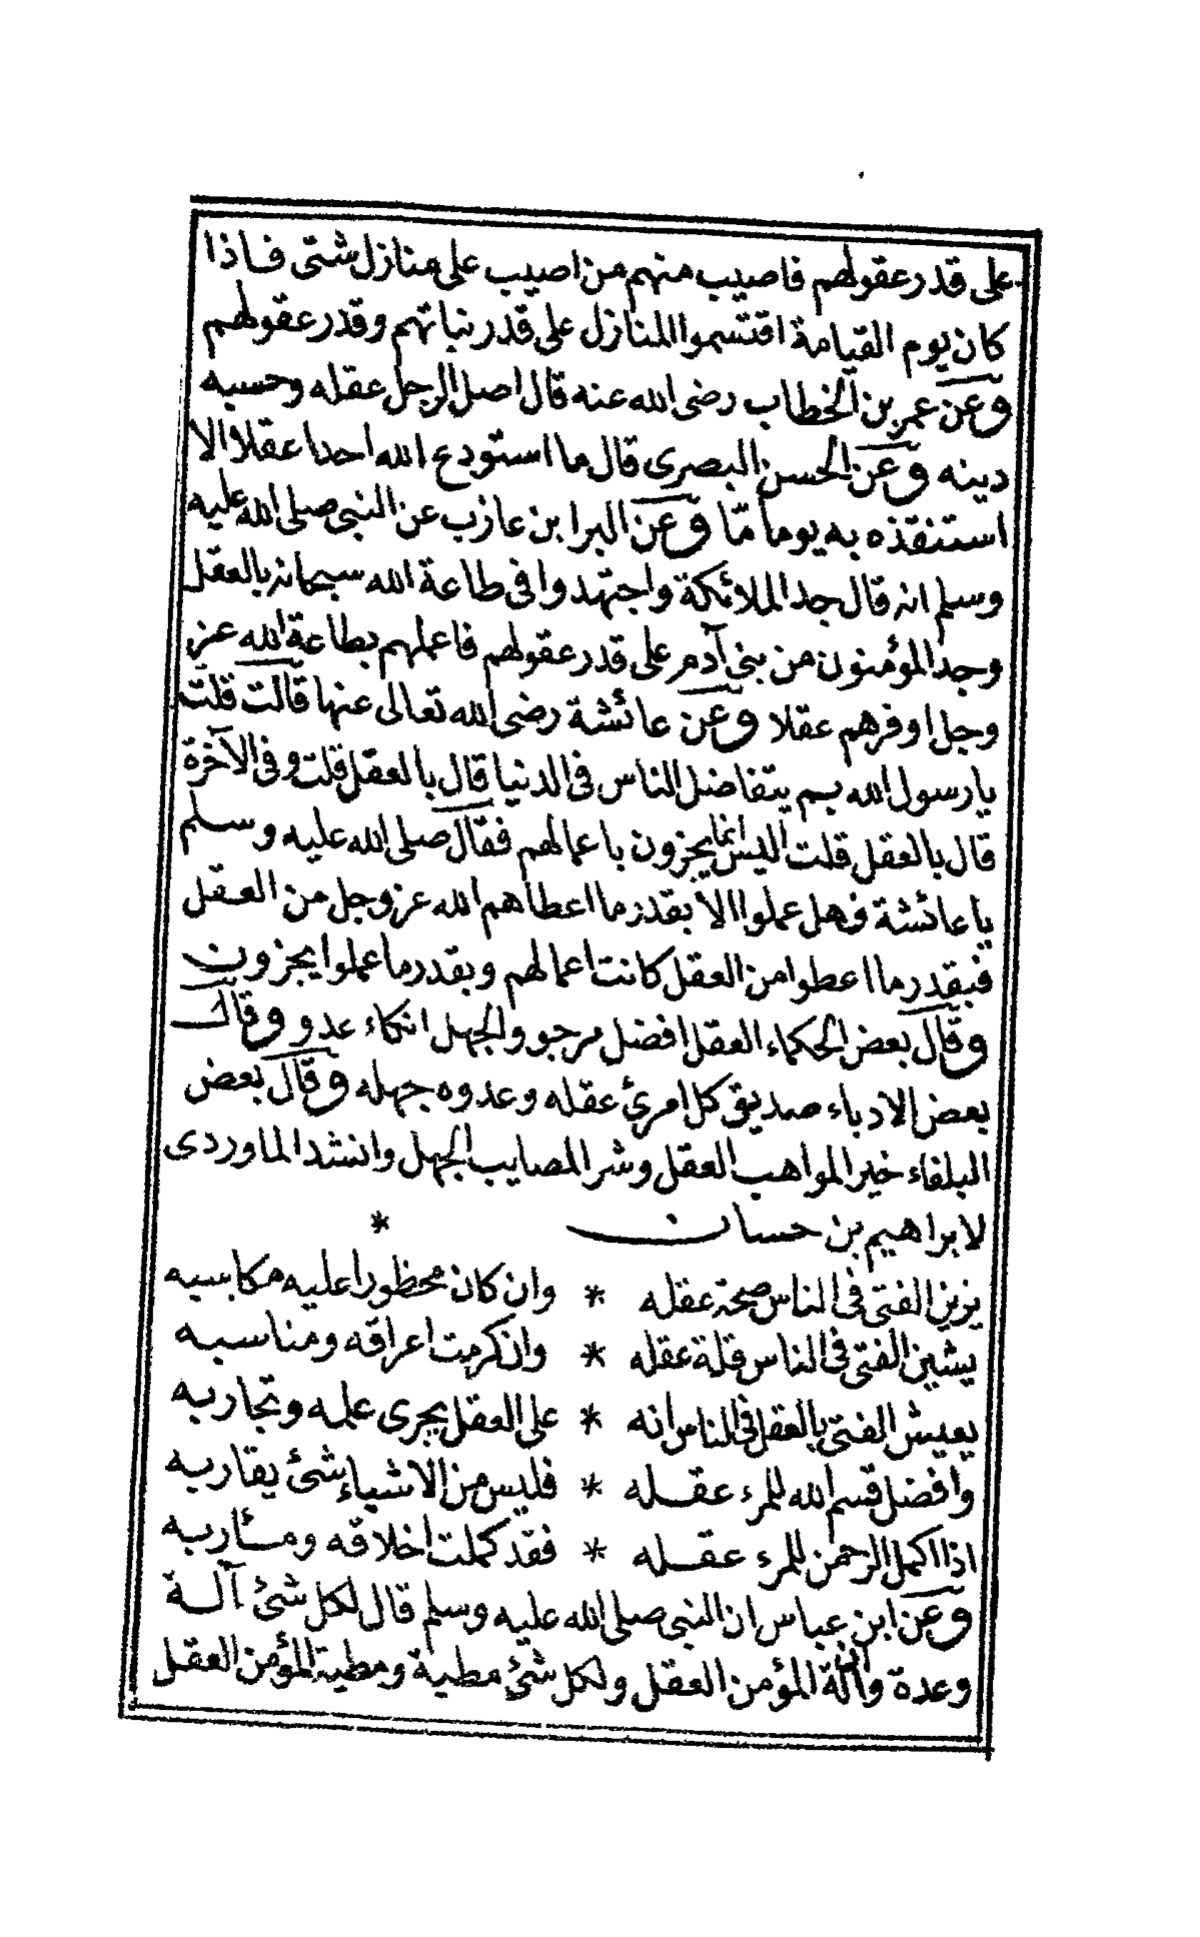 على قدر عقولهم فاصيب منهم من اصيب على منازل شتى فاذا
كان يوم القيامة اقتسموا المنازل على قدر نياتهم وقدر عقولهم
وعن عمر بن الخطاب رضى الله عنه قال اصل الرجل عقله وحسبه
دينه وعن الحسن البصرى قال ما استودع الله احدا عقلا الا
استنقذه به يوما مّا وعن البرا بن عازب عن النبى صلى الله عليه
وسلم انه قال جد الملائكة واجتهدوا فى طاعة الله سبحانه بالعقل
وجد المؤمنون من بنى آدم على قدر عقولهم فاعملهم بطاعة الله عز
وجل اوفرهم عقلا وعن عائشة رضى الله تعالى عنها قالت قلت
يا رسول الله بم يتفاضل الناس فى الدنيا قال بالعقل قلت وفى الآخرة
قال بالعقل قلت اليس انما يجزون باعمالهم فقال صلى الله عليه وسلم
يا عائشة وهل عملوا الا بقدر ما اعطاهم الله عز وجل من العقل
فبقدر ما اعطوا من العقل كانت اعمالهم وبقدر ما عملوا يجزون
وقال بعض الحكماء العقل افضل مرجو والجهل انكاء عدو وقال
بعض الادباء صديق كل امرئ عقله وعدوه جهله وقال بعض
البلغاء خير المواهب العقل وشر المصايب الجهل وانشد الماوردى
لابراهيم بن حسان *
يزين الفتى فى الناس صحة عقله * وان كان محظورا عليه مكاسبه
يشين الفتى فى الناس قلة عقله * وان كرمت اعراقه ومناسبه
يعيش الفتى بالعقل فى الناس انه * على العقل يجرى علمه وتجاربه
وافضل قسم الله للمرء عقله * فليس من الاشياء شئ يقاربه
اذا اكمل الرحمن للمرء عقله * فقد كملت اخلاقه ومئاربه
وعن ابن عباس ان النبى صلى الله عليه وسلم قال لكل شئ آلة
وعدة وان آلة المؤمن العقل ولكل شئ مطية ومطية المؤمن العقل